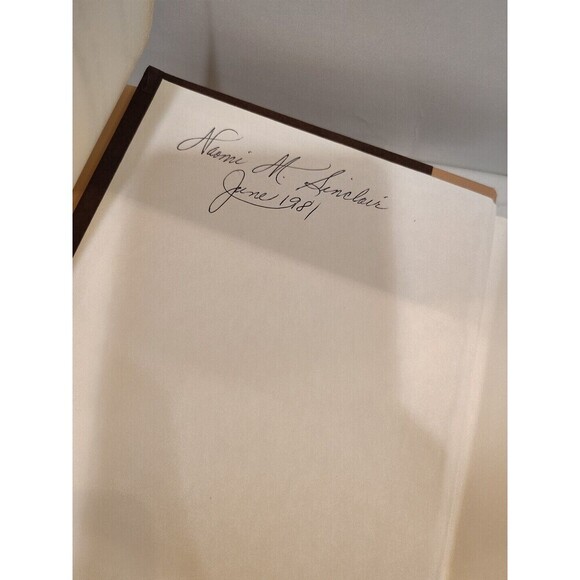 Naomi M. Sinclair
June 1981